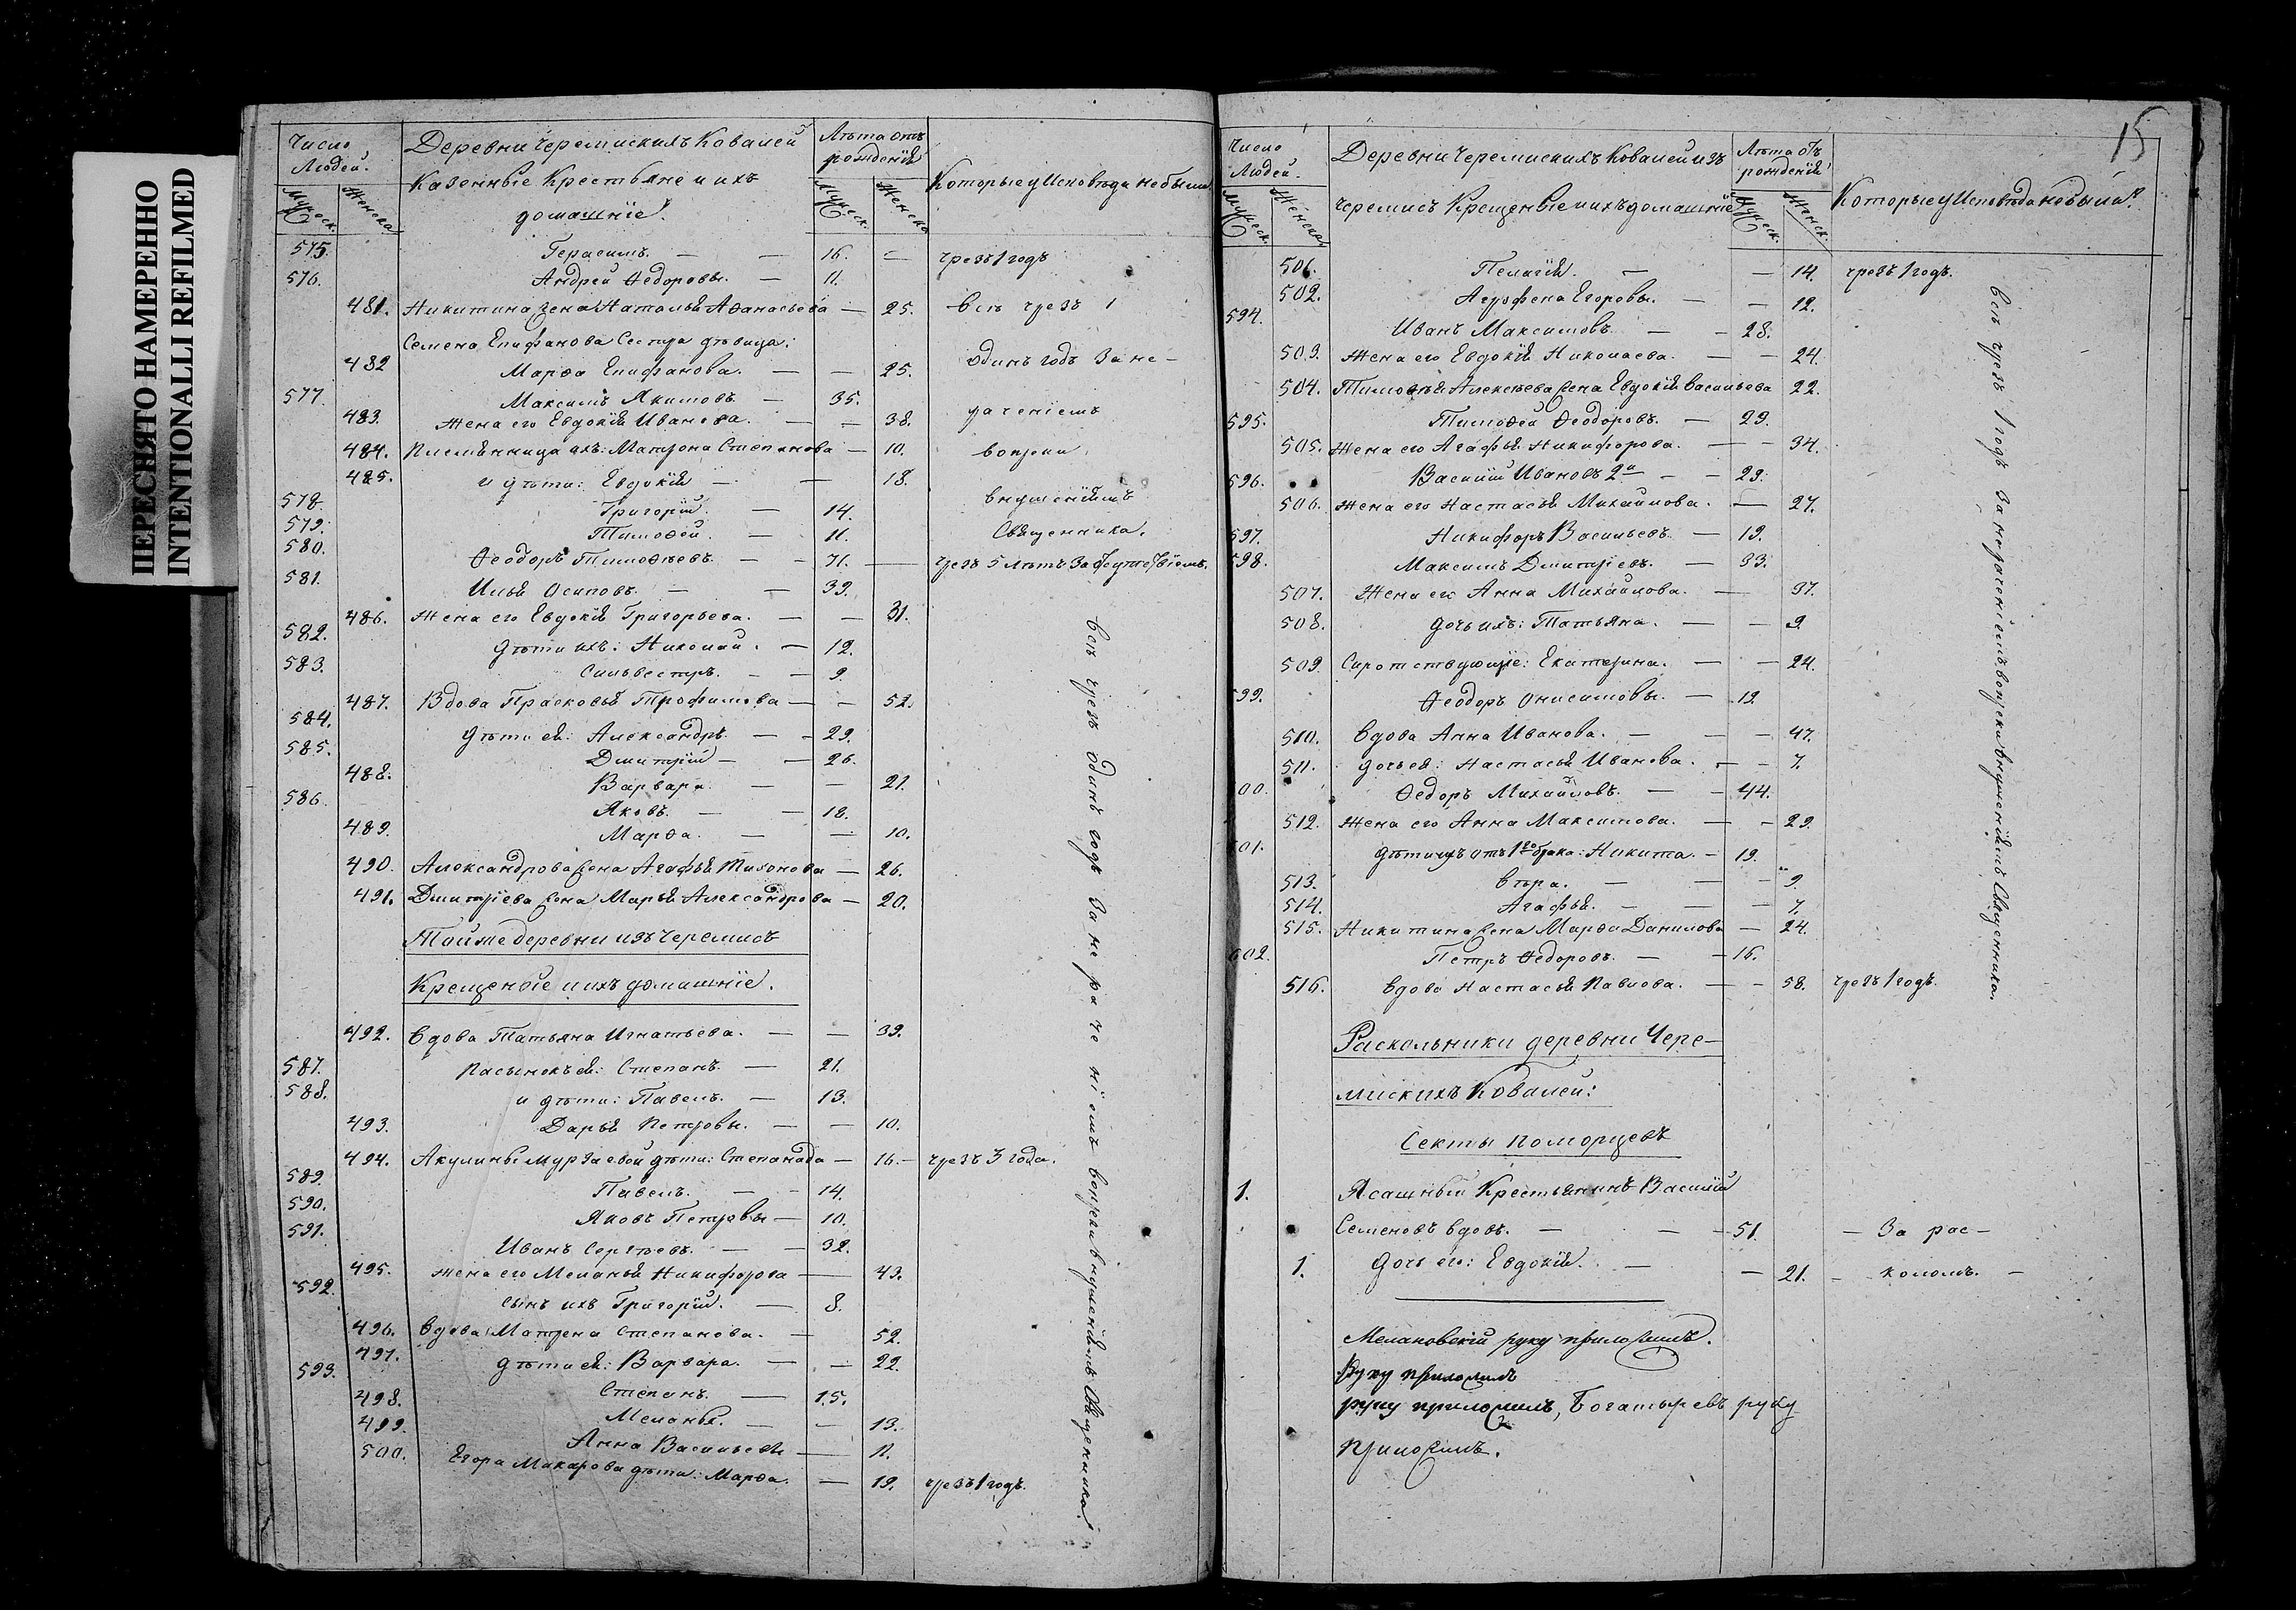 ПЕРЕСНЯТО НАМЕРЕННО
INTENTIONALLI REFILMED
Число Людей.
Мужеск.
Женска
Деревни Черемискихъ Ковалей
Казенные Крестьяне и ихъ
домашніе.
Лѣта отъ рожденія
Мужеск.
Женско
Которые у Исповѣди небыли
575. Герасимъ. — — 16. — чрезъ 1 годъ
576. Андрей Ѳедоровы. — 11.
481. Никитина жена Наталья Аѳанасьева — 25. всѣ чрезъ 1
Семена Епифанова Сестра дѣвица:
482 Марѳа Епифанова. — — 25. одинъ годъ За не-
577. Максимъ Якимовъ — 35.
483. Жена его Евдокія Иванова. — — 38. раченіемъ
484. Племянница ихъ: Матрона Степанова — 10. вопреки
485. и дѣти: Евдокія — — 18.
578. Григорій. — 14. внушеніямъ
579. Тимоѳей. — 11. Священника.
580. Ѳеодоръ Тимоѳѣевъ. — — 71. — чрезъ 5 лѣтъ За отсутствіемъ.
581. Илья Осиповъ. — — 39.
486. Жена его Евдокія Григорьева. — — 31.
582. дѣти ихъ: Николай. — 12.
583. Сильвестръ. — — 9.
487. Вдова Прасковья Трофимова — — 52.
584. дѣти ея: Александръ. — — 29.
585. Дмитрій — — 26.
488. Варвара. — — 21.
586. Яковъ. — — 18.
489. Марѳа. — — 10.
490. Александрова жена Агафья Тихонова — 26.
491. Дмитріева жена Марья Александрова — 20.
Тойже деревни изъ Черемисъ
Крещеные и ихъ домашніе.
492. Вдова Татьяна Игнатьева. — — 39.
587. Пасынокъ ея: Степанъ. — 21.
588. и дѣти: Павелъ. — 13.
493. Дарья Петровы. — — 10.
494. Акулины Мурзаевой дѣти: Степанида — 16. — чрезъ 3 года.
589. Павелъ. — — 14.
590. Яковъ Петровы — 10.
591. Иванъ Сергѣевъ. — — 32.
495. жена его Меланья Никифорова — 43.
592. Сынъ ихъ Григорій. — 8.
496. Вдова Матрена Степанова. — 52.
497. дѣти ея: Варвара. — — 22.
593. Степанъ. — 15.
498. Меланья. — — 13.
499. Анна Васильевы — 11.
500. Егора Макарова дѣти: Марѳа. — 19. чрезъ 1 годъ.
всѣ чрезъ одинъ годъ За нераченіемъ вопреки внушеніямъ Священника.
15
Число Людей.
Мужеск.
Женска
Деревни Черемискихъ Ковалей изъ
Черемисъ Крещеные и ихъ домашніе
Лѣта отъ рожденія
Мужеск.
Женск.
Которые у Исповѣди небыли.
501. Пелагія. — — 14. чрезъ 1 годъ.
502. Агрофена Егоровы. — — 12.
594. Иванъ Максимовъ. — — 28.
503. Жена его Евдокія Николаева. — — 24.
504. Тимоѳѣя Алексѣева жена Евдокія Васильева 22.
595. Тимоѳей Ѳеодоровъ. — 29.
505. Жена его Агафья Никифорова. — — 34.
596. Василій Ивановъ 2й — — 29.
506. Жена его Настасья Михайлова. — 27.
597. Никифоръ Васильевъ. — 19.
598. Максимъ Дмитріевъ. — 33.
507. Жена его Анна Михайлова. — 37.
508. дочь ихъ: Татьяна. — — 9.
509. Сиротствующіе: Екатерина. — — 24.
599. Ѳеодоръ Онисимовы. — 19
510. Вдова Анна Иванова. — — 47.
511. дочь ея: Настасья Иванова. — — 7.
00. Ѳедоръ Михайловъ. — — 44.
512. Жена его Анна Максимова. — — 29.
01. дѣти ихъ отъ 1го брака: Никита. — 19.
513. Вѣра. — — — 9.
514. Агафья. — — — 7.
515. Никитина жена Марѳа Данилова — 24.
602. Петръ Ѳедоровъ. — — 16.
516. Вдова Настасья Павлова. — — 58. чрезъ 1 годъ.
всѣ чрезъ 1 годъ За нераченіемъ вопреки внушеніямъ Священника.
Раскольники деревни Чере-
мискихъ Ковалей:
Секты поморцевъ
1. Ясашный Крестьянинъ Василій
Семеновъ вдовъ. — — — 51. — За рас-
1. Дочь его: Евдокія. — — 21. — коломъ. —
Мелановскій руку приложилъ.
Руку приложилъ
руку приложилъ, Богатыревъ руку
приложилъ.